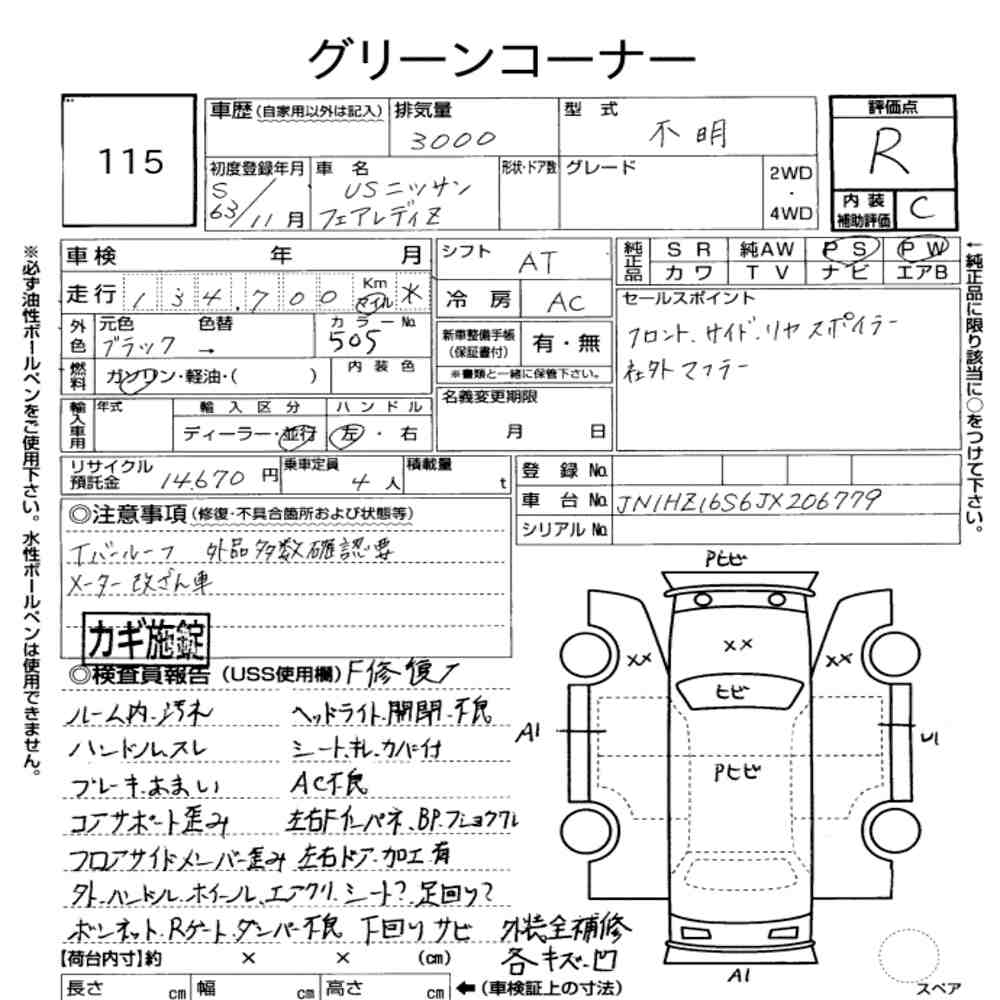 グリーンコーナー
115
車歴 (自家用以外は記入) 排気量 3000 型式 不明
評価点 R
初度登録年月 S63/11月 車名 USニッサン フェアレディZ 形状・ドア数 グレード 2WD・4WD
内装補助評価 C
車検 年 月 シフト AT
純正品 SR 純AW PS PW
カワ TV ナビ エアB
走行 134,700 Km マイル 冷房 AC
セールスポイント
フロント.サイド.リヤスポイラー
社外マフラー
外色 元色 ブラック → 色替 カラーNo. 505
新車整備手帳(保証書付) 有・無
※書類と一緒に保管下さい。
燃料 ガソリン・軽油・( ) 内装色
名義変更期限 月 日
輸入車用 年式 輸入区分 ハンドル
ディーラー・並行 左・右
リサイクル預託金 14,670円 乗車定員 4人 積載量 t
登録No.
車台No. JN1HZ16S6JX206779
シリアルNo.
◎注意事項 (修復・不具合箇所および状態等)
Tバールーフ 外品多数確認要
メーター改ざん車
カギ施錠
◎検査員報告 (USS使用欄) F修復ﾉ
ルーム内.汚れ ヘッドライト.開閉.不良
ハンドル.スレ シート.キレ.カバー付
ブレーキ.あまい AC不良
コアサポート歪み 左右Fインパネ、BP.フショクアレ
フロアサイドメンバー歪み 左右ドア.加工.有
外.ハンドル.ホイール、エアクリ、シート? 足回り?
ボンネット.Rゲート.ダンパー不良 下回りサビ 外装全補修
各キズ.凹
【荷台内寸】約 × × (cm)
長さ cm 幅 cm 高さ cm ←(車検証上の寸法)
Pヒビ
××
××
××
ヒビ
A1
U1
Pヒビ
A1
スペア
※必ず油性ボールペンをご使用下さい。水性ボールペンは使用できません。
←純正品に限り該当に○をつけて下さい。